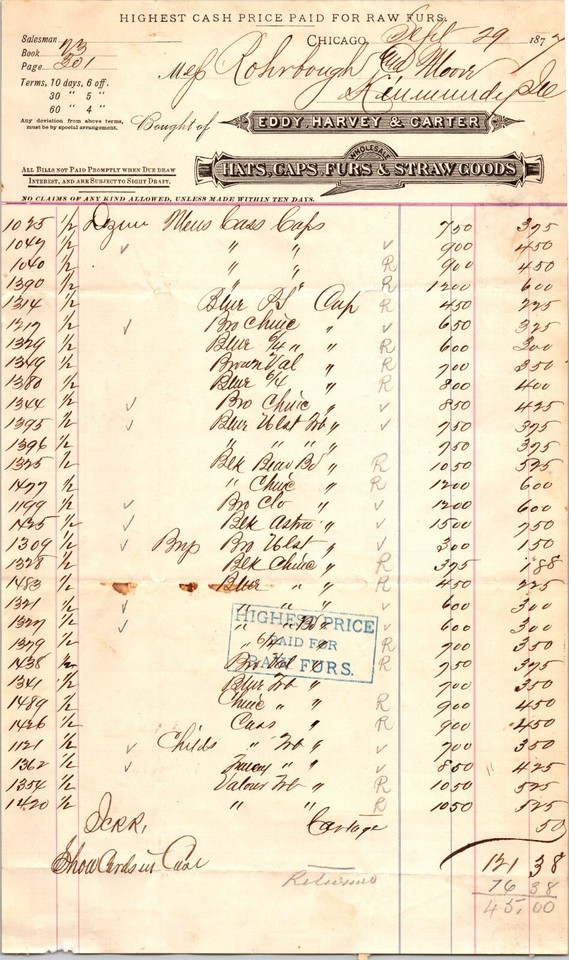 HIGHEST CASH PRICE PAID FOR RAW FURS.
Salesman
Book 73
Page 301
CHICAGO, Sept 29 1877
Terms, 10 days, 6 off.
30 " 5 "
60 " 4 "
Any deviation from above terms, must be by special arrangement.
Mess Rohrbough and Moore
Kinmundy Ills
Bought of EDDY, HARVEY & CARTER
WHOLESALE
HATS, CAPS, FURS & STRAW GOODS
ALL BILLS NOT PAID PROMPTLY WHEN DUE DRAW INTEREST, AND ARE SUBJECT TO SIGHT DRAFT.
NO CLAIMS OF ANY KIND ALLOWED, UNLESS MADE WITHIN TEN DAYS.
1025 1/2 Dozen Mens Cass Caps 750 375
1047 1/2 " " 900 450
1040 1/2 " " R 900 450
1390 1/2 " " R 1200 600
1314 1/2 Blue Cap R 450 225
1217 1/2 Bro Chinc " 650 325
1329 1/2 Blue 6/4 " " R 600 300
1349 1/2 Brown Val " R 700 350
1380 1/2 Blue 6/4 " R 800 400
1344 1/2 Bro Chinc " 850 425
1395 1/2 Blue Ulst " 750 375
1396 1/2 " " " " 750 375
1325 1/2 Blk Beav " R 1050 525
1477 1/2 " Chinc " R 1200 600
1199 1/2 Bro Clo " 1200 600
1425 1/2 Blk Astra " 1500 750
1309 1/2 Boys Bro Ulst " 300 150
1328 1/2 Blk Chinc " R 375 188
1483 1/2 Blue " " R 450 225
1321 1/2 " " " 600 300
1327 1/2 " " " 600 300
1379 1/2 6/4 " R 700 350
1438 1/2 Bro Val " R 750 375
1341 1/2 Blue " 700 350
1489 1/2 Chinc " " R 900 450
1426 1/2 Cass " R 900 450
1121 1/2 Childs " " 700 350
1362 1/2 Fancy " " 850 425
1354 1/2 Velour " R 1050 525
1420 1/2 " " R 1050 525
HIGHEST PRICE
PAID FOR
RAW FURS.
ICRR, Cartage 50
Show Cards in Case 121 38
Returned 76 38
45,00